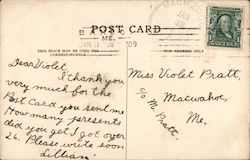 POST CARD
ME.
JAN 11
1909
THIS SPACE MAY BE USED FOR CORRESPONDENCE
FOR ADDRESS ONLY
Dear Violet
I thank you
very much for the
Post Card you sent me
How many presents
did you get I got over
26. Please write soon
Lillian
Miss Violet Pratt,
Macwahoc,
Me.
c/o Mr. Pratt.